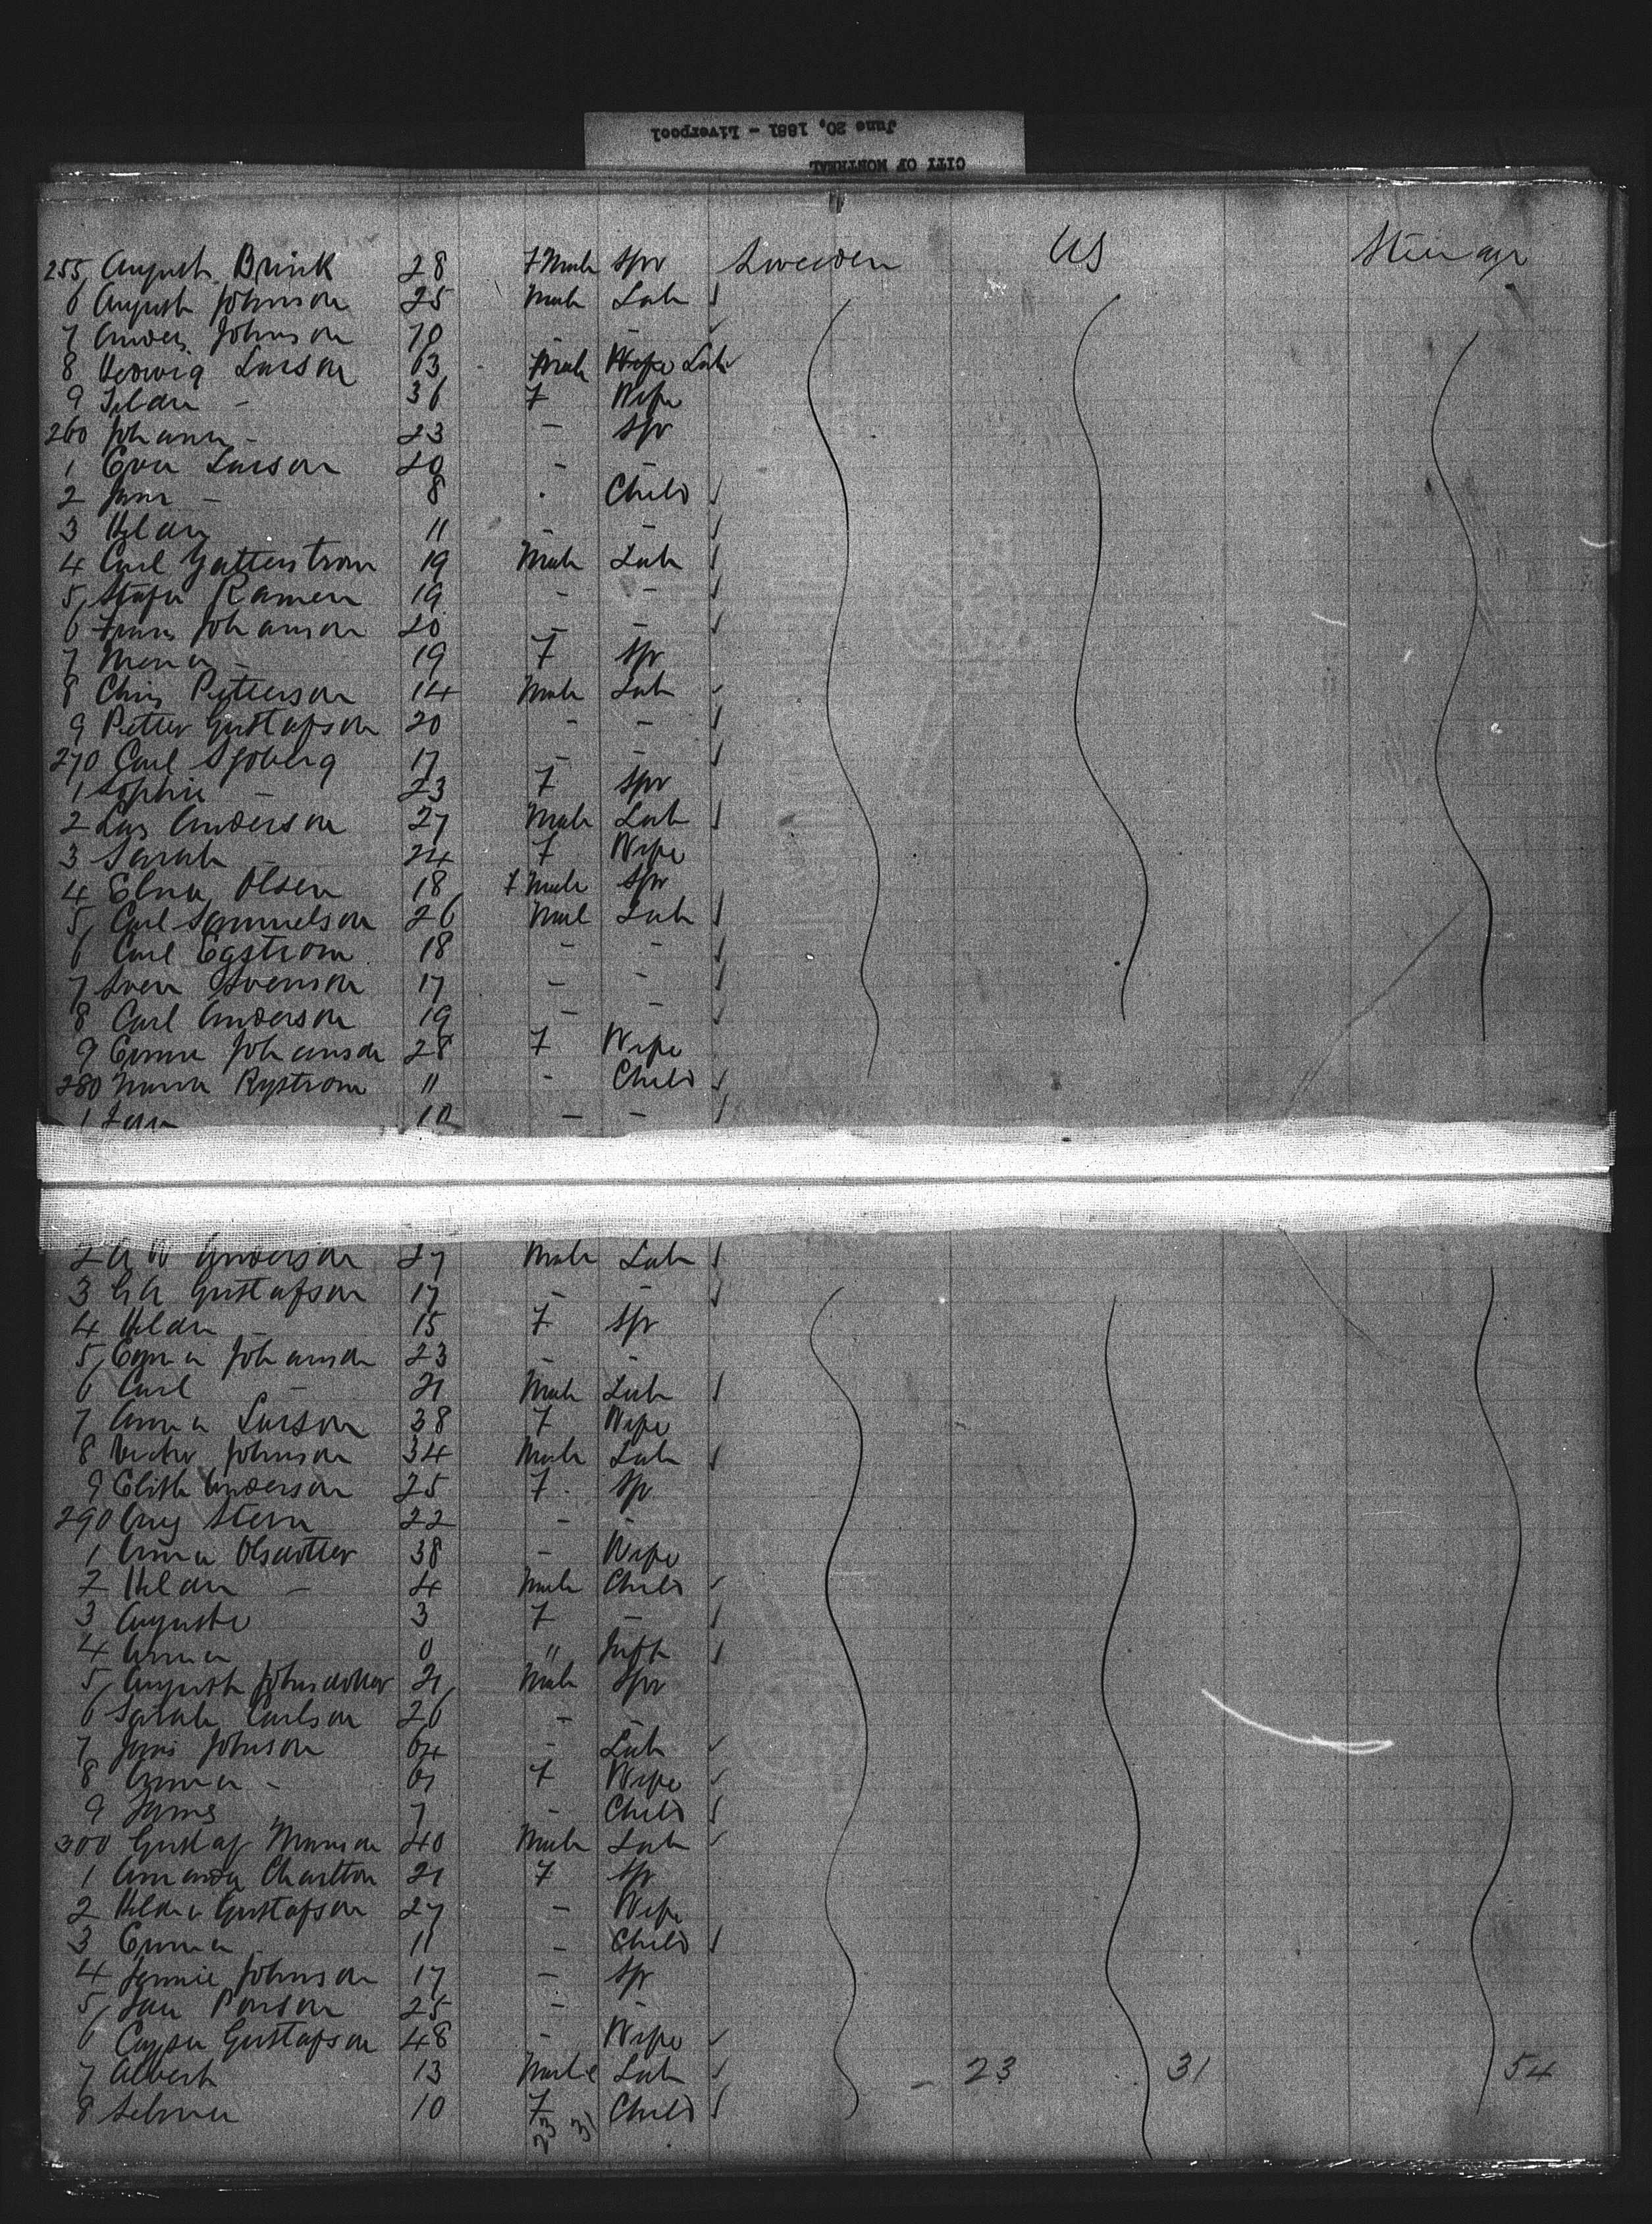 CITY OF MONTREAL
June 20, 1881 - Liverpool
255 August Brink 28 F Male Spr Sweden US Steerage
6 August Johnson 25 Male Lab
7 Anders Johnson 70 - -
8 Hedwig Larson 63 Male Wife Lab
9 Hilda - 36 F Wife
260 Johanna - 23 - Spr
1 Eva Larson 20 - -
2 Jane - 8 - Child
3 Hilda 11 - -
4 Carl Gatterstrom 19 Male Lab
5 Ramen 19 - -
6 Frans Johanson 20 - -
7 - 19 F Spr
8 Chris Petterson 14 Male Lab
9 Petter Gustafson 20 - -
270 Carl Sjoberg 17 - -
1 Sophie - 23 F Spr
2 Lars Anderson 27 Male Lab
3 Sarah - 24 F Wife
4 Elna Olsen 18 F Male Spr
5 Carl Samuelson 26 Male Lab
6 Carl Egstrom 18 - -
7 Sven Svenson 17 - -
8 Carl Anderson 19 - -
9 Emma Johanson 28 F Wife
280 Rystrom 11 - Child
1 10 - -
2 A W Anderson 27 Male Lab
3 G A Gustafson 17 - -
4 Hilda - 15 F Spr
5 Emma Johanson 23 - -
6 Carl - 21 Male Lab
7 Anna Larson 38 F Wife
8 Victor Johnson 34 Male Lab
9 Elith Anderson 25 F Sp
290 Aug Stern 22 - -
1 Anna Olsdotter 38 - Wife
2 Hilda - 4 Male Child
3 Auguste 3 F -
4 Anna 0 " Inft
5 August Johnsdotter 21 Male Spr
6 Sarah Carlson 26 - -
7 Johnson 64 - Lab
8 Anna - 61 F Wife
9 James 7 - Child
300 Gustaf Manson 40 Male Lab
1 Amanda Charlton 21 F Sp
2 Hilda Gustafson 27 - Wife
3 Emma - 11 - Child
4 Jennie Johnson 17 - Sp
5 25 - -
6 Gustafson 48 - Wife
7 Albert 13 Male Lab - 23 31 54
8 Selma 10 F Child
23 31